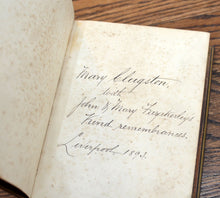 Mary Clugston,
with
John & Mary
Kind remembrances.
Liverpool 1893.